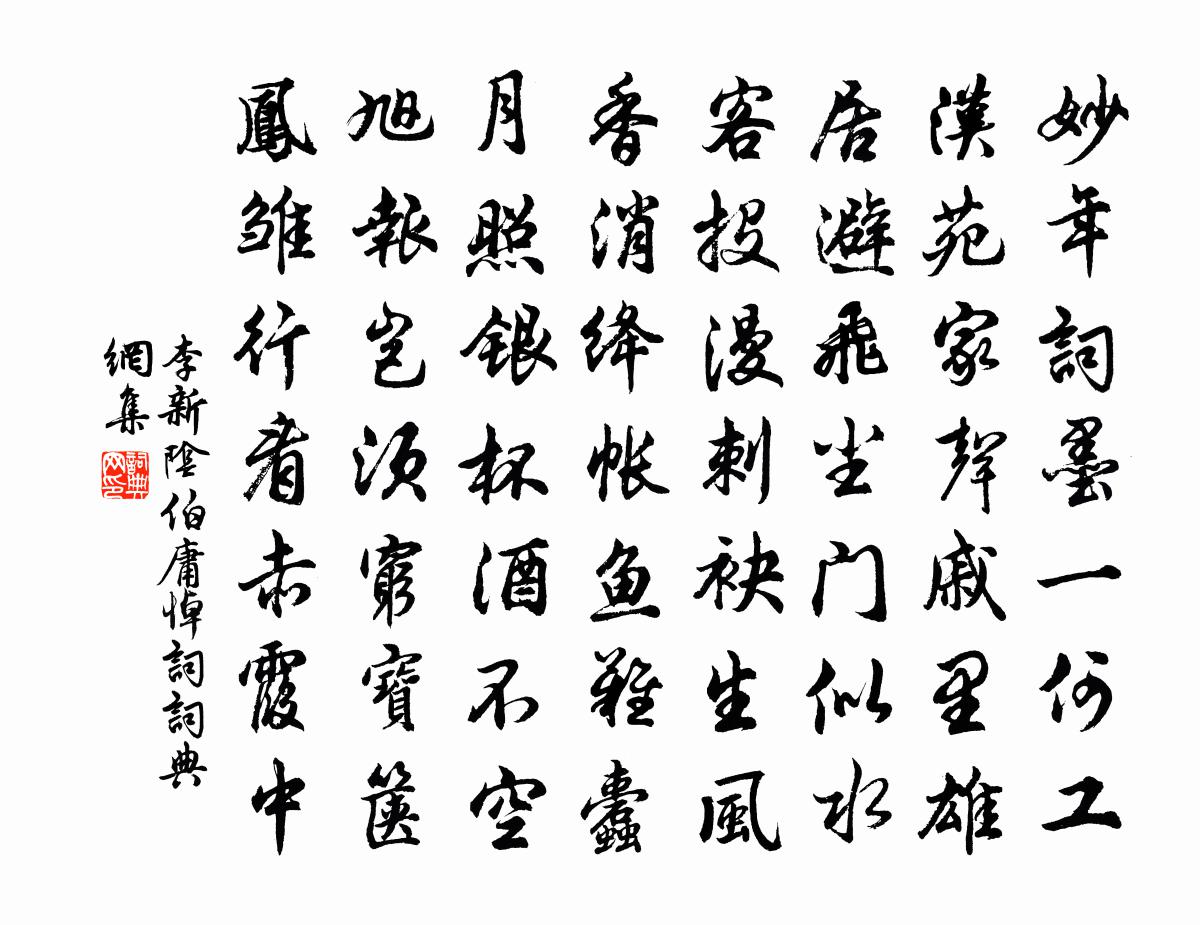 妙年詞墨一何工
漢苑家聲戚里雄
居避飛尘门似水
客投漫刺袂生風
香消绛帐鱼難蠹
月照銀杯酒不空
旭報岂须窮寶箧
鳳雏行看赤霞中
李新陰伯庸悼詞詞典
網集
詞典网印